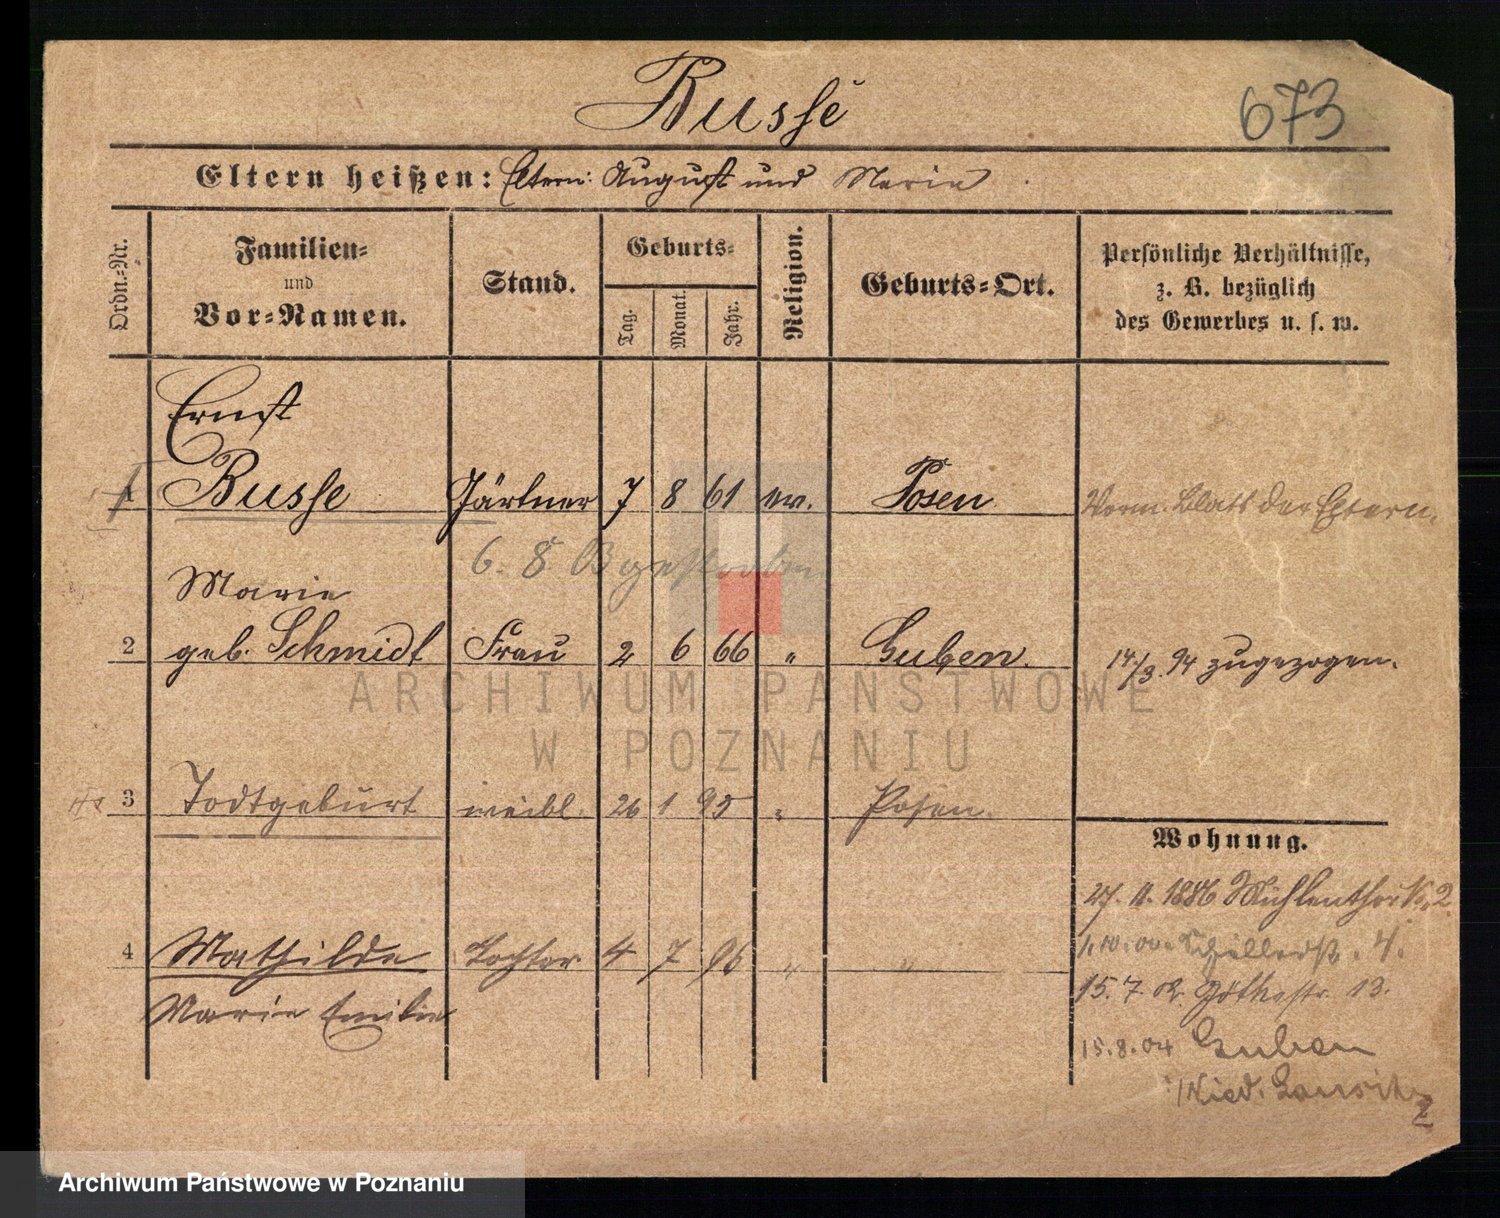 Busse
673
Eltern heißen: Eltern: August und Maria
Ordn.=Nr.
Familien=
und
Vor=Namen.
Stand.
Geburts=
Tag.
Monat.
Jahr.
Religion.
Geburts=Ort.
Persönliche Verhältnisse,
z. B. bezüglich
des Gewerbes u. s. w.
Ernst
1 Busse Gärtner 7 8 61 ev. Posen Verm. Blatt der Eltern.
6. 8 gestorben
Marie
2 geb. Schmidt Frau 2 6 66 " Guben. 14/3. 94 zugezogen.
3 Todtgeburt weibl. 26 1 95 " Posen.
Wohnung.
27. 11. 1886 Mühlenthorstr. 2
4 Mathilde Tochter 4 7 96 " "
1.10.00. Schillerstr. 4.
15. 7. 02. Göthestr. 13.
Marie Emilie
15.8.04 Guben
Nied. Lausitz
2
ARCHIWUM PAŃSTWOWE
W POZNANIU
Archiwum Państwowe w Poznaniu